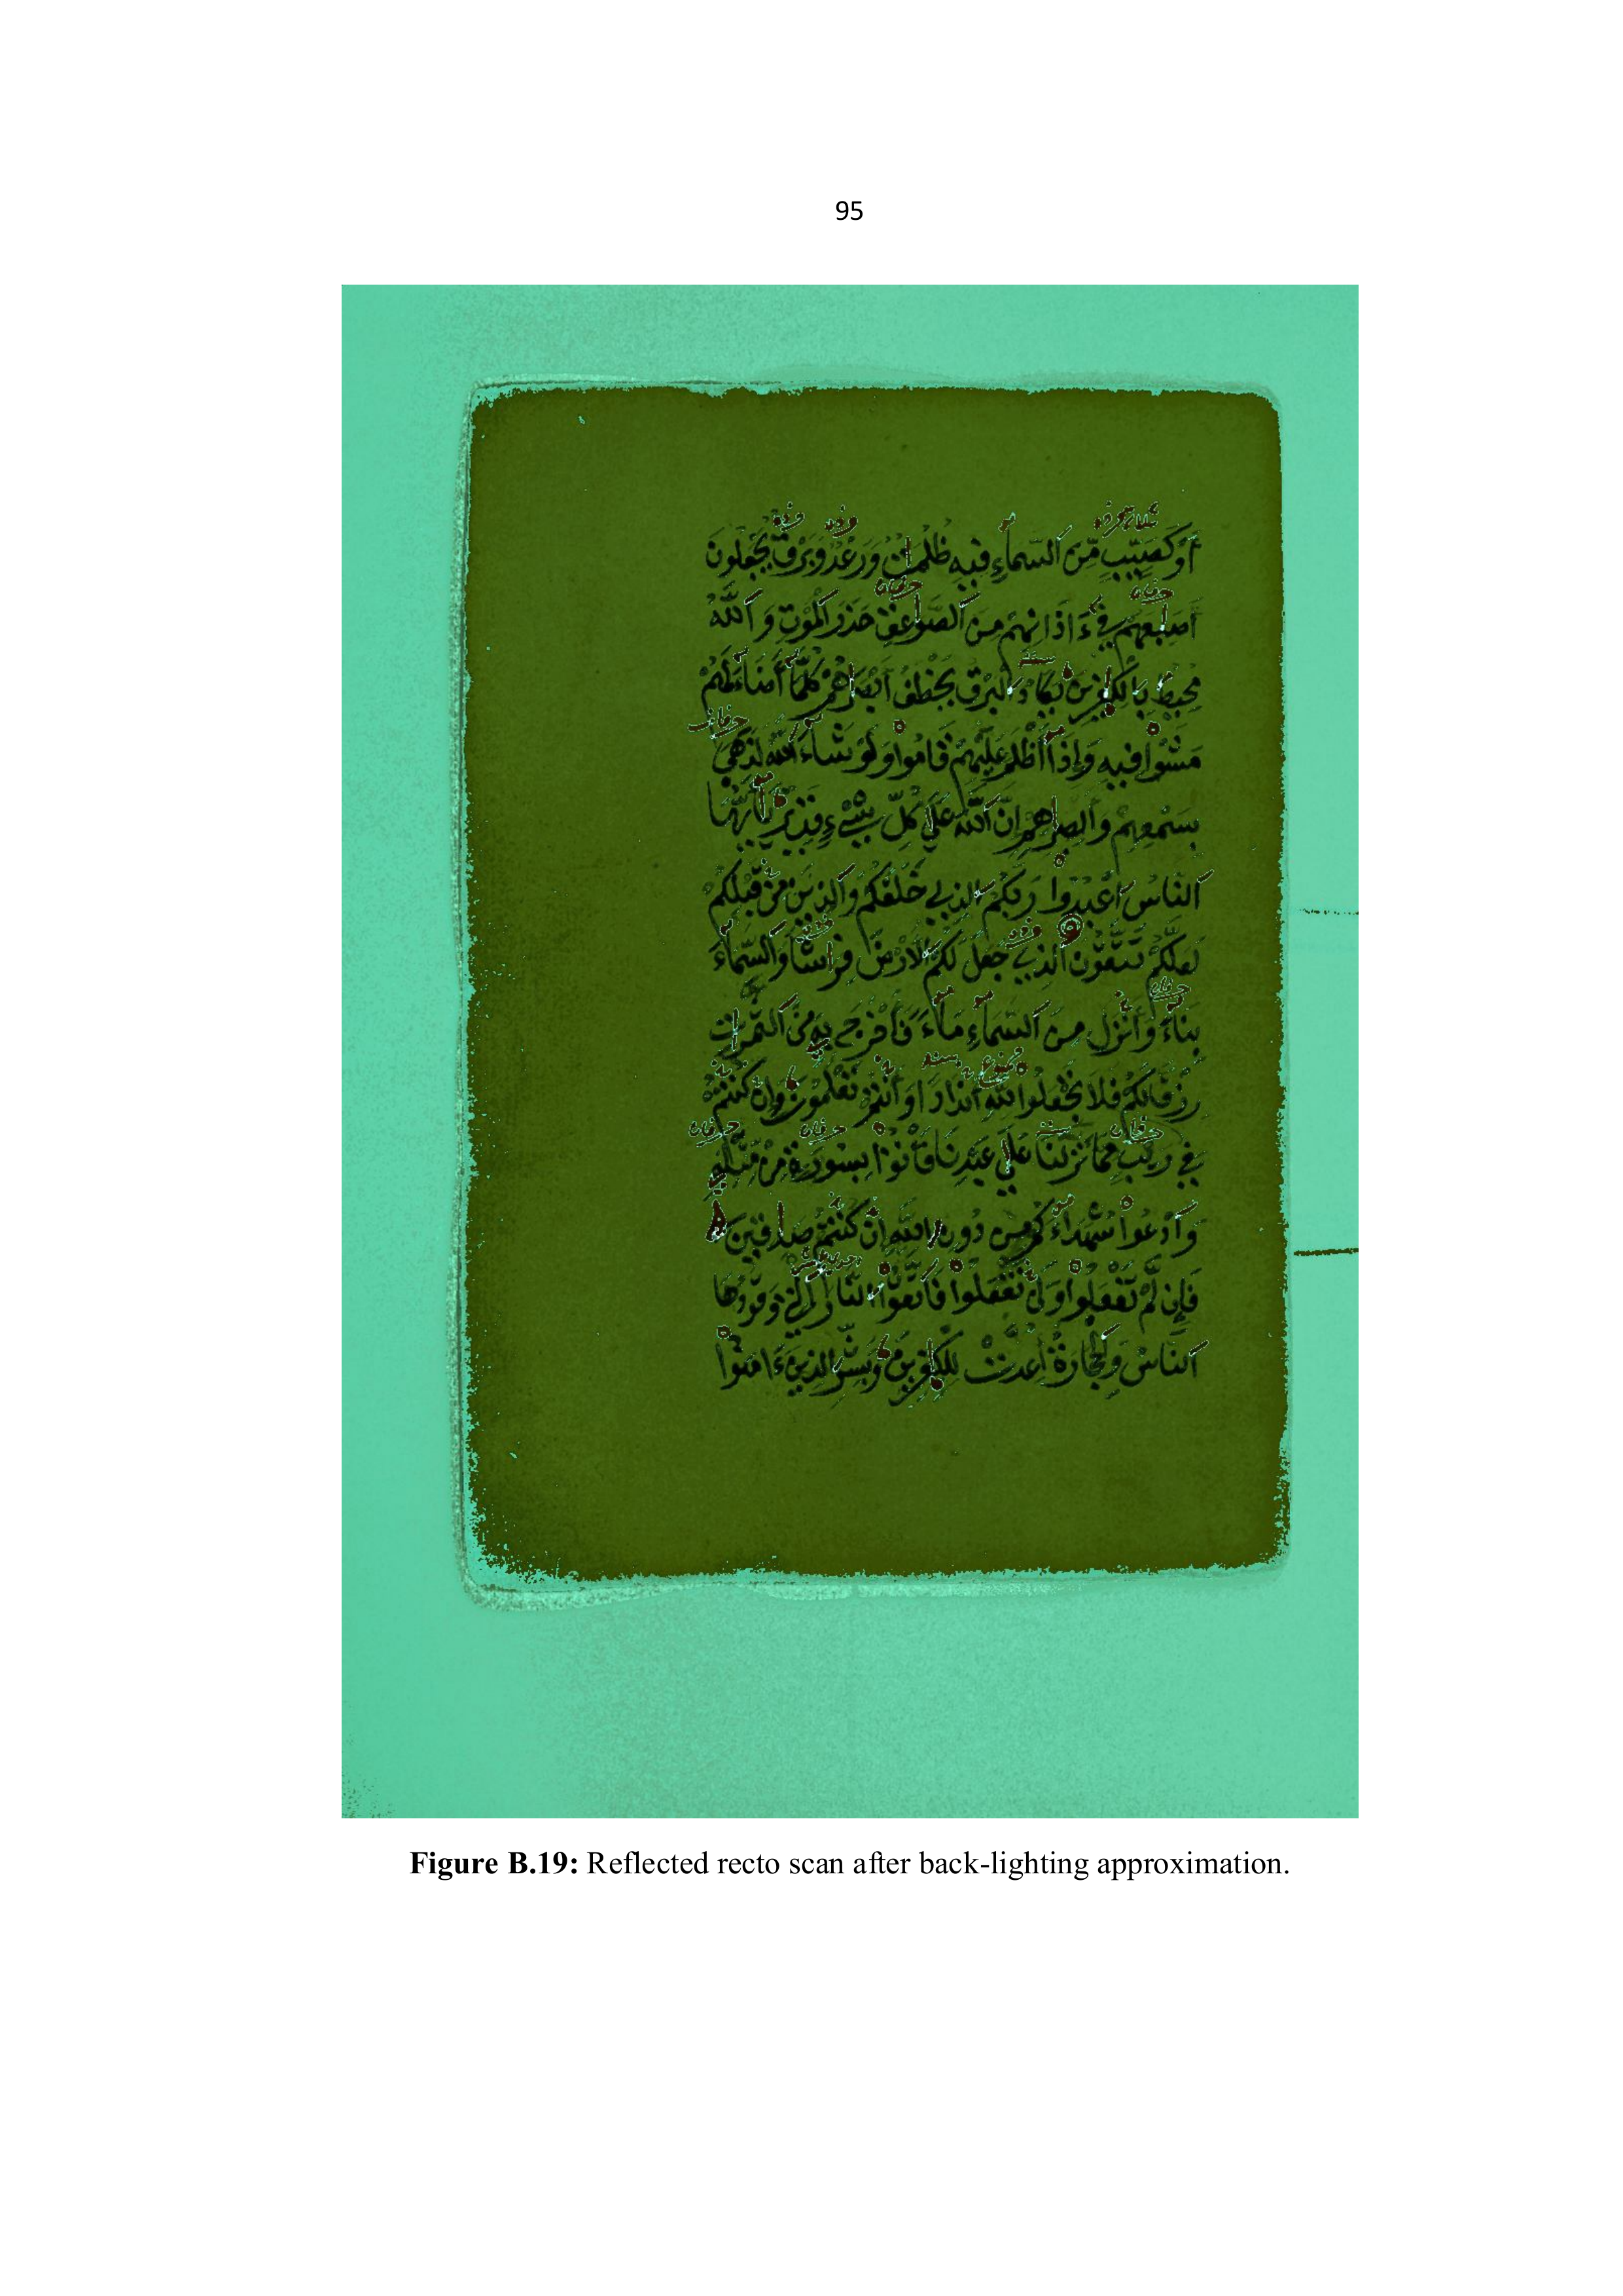 95
أَوْ كَصَيِّبٍ مِّنَ ٱلسَّمَآءِ فِيهِ ظُلُمَٰتٌ وَرَعْدٌ وَبَرْقٌ يَجْعَلُونَ
أَصَٰبِعَهُمْ فِيٓ ءَاذَانِهِم مِّنَ ٱلصَّوَٰعِقِ حَذَرَ ٱلْمَوْتِ وَٱللَّهُ
مُحِيطٌ بِٱلْكَٰفِرِينَ يَكَادُ ٱلْبَرْقُ يَخْطَفُ أَبْصَٰرَهُمْ كُلَّمَآ أَضَآءَ لَهُم
مَّشَوْا۟ فِيهِ وَإِذَآ أَظْلَمَ عَلَيْهِمْ قَامُوا۟ وَلَوْ شَآءَ ٱللَّهُ لَذَهَبَ
بِسَمْعِهِمْ وَأَبْصَٰرِهِمْ إِنَّ ٱللَّهَ عَلَىٰ كُلِّ شَيْءٍ قَدِيرٌ يَٰٓأَيُّهَا
ٱلنَّاسُ ٱعْبُدُوا۟ رَبَّكُمُ ٱلَّذِي خَلَقَكُمْ وَٱلَّذِينَ مِن قَبْلِكُمْ
لَعَلَّكُمْ تَتَّقُونَ ٱلَّذِي جَعَلَ لَكُمُ ٱلْأَرْضَ فِرَٰشًا وَٱلسَّمَآءَ
بِنَآءً وَأَنزَلَ مِنَ ٱلسَّمَآءِ مَآءً فَأَخْرَجَ بِهِۦ مِنَ ٱلثَّمَرَٰتِ
رِزْقًا لَّكُمْ فَلَا تَجْعَلُوا۟ لِلَّهِ أَندَادًا وَأَنتُمْ تَعْلَمُونَ وَإِن كُنتُمْ
فِي رَيْبٍ مِّمَّا نَزَّلْنَا عَلَىٰ عَبْدِنَا فَأْتُوا۟ بِسُورَةٍ مِّن مِّثْلِهِۦ
وَٱدْعُوا۟ شُهَدَآءَكُم مِّن دُونِ ٱللَّهِ إِن كُنتُمْ صَٰدِقِينَ
فَإِن لَّمْ تَفْعَلُوا۟ وَلَن تَفْعَلُوا۟ فَٱتَّقُوا۟ ٱلنَّارَ ٱلَّتِي وَقُودُهَا
ٱلنَّاسُ وَٱلْحِجَارَةُ أُعِدَّتْ لِلْكَٰفِرِينَ وَبَشِّرِ ٱلَّذِينَ ءَامَنُوا۟
Figure B.19: Reflected recto scan after back-lighting approximation.